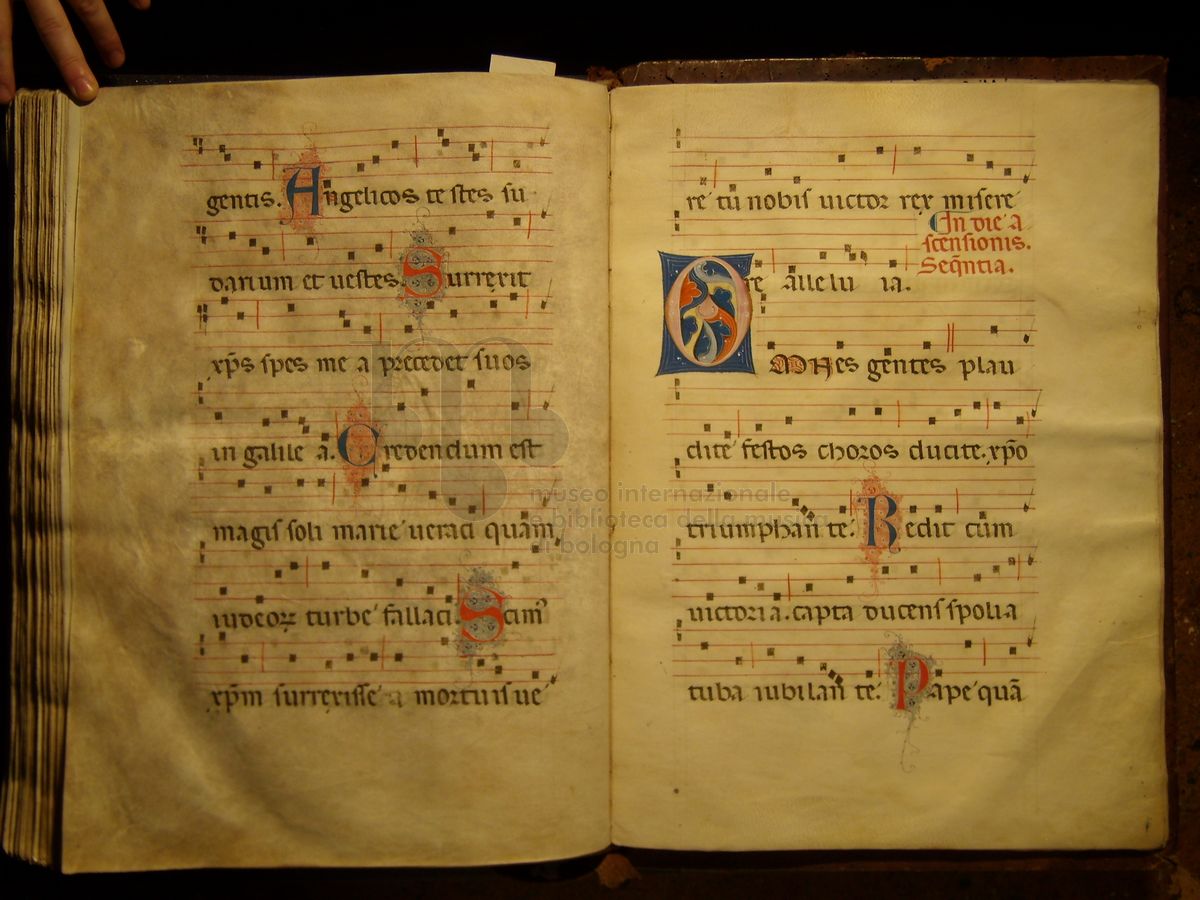 gentis. Angelicos te stes su
darium et uestes. Surrexit
xp̄s spes me a precedet suos
in galile a. Credendum est
magis soli marie ueraci quam
iudeoꝝ turbe fallaci. Scimꝰ
xp̄m surrexisse a mortuis ue
re tu nobis uictor rex misere
re allelu ia.
In die a
scensionis.
Seqn̄tia.
OMNes gentes plau
dite festos choros ducite xp̄o
triumphan te. Redit cum
uictori a. capta ducens spolia
tuba iubilan te. Pape quā
museo internazionale
e biblioteca della musica
di bologna